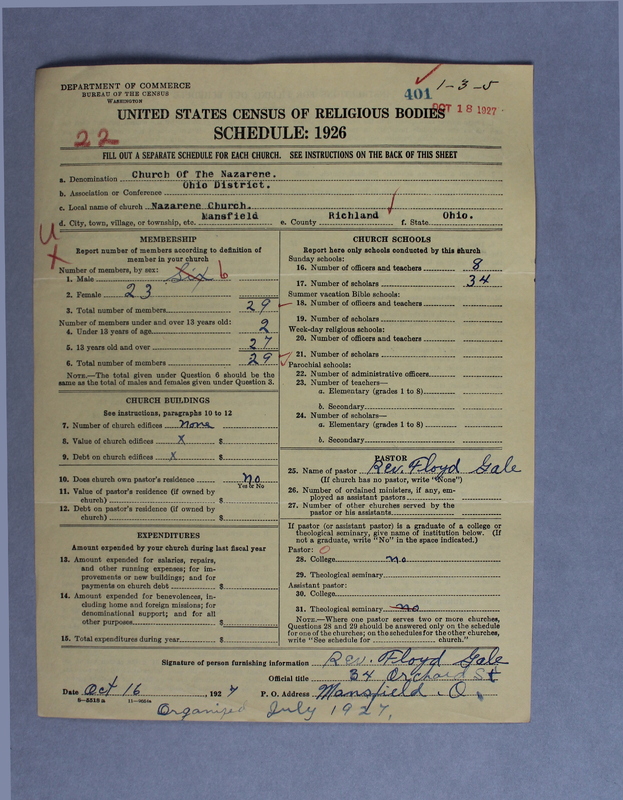 DEPARTMENT OF COMMERCE
BUREAU OF THE CENSUS
WASHINGTON
401 1-3-5
OCT 18 1927
UNITED STATES CENSUS OF RELIGIOUS BODIES
SCHEDULE: 1926
22
FILL OUT A SEPARATE SCHEDULE FOR EACH CHURCH. SEE INSTRUCTIONS ON THE BACK OF THIS SHEET
a. Denomination Church Of The Nazarene.
b. Association or Conference Ohio District.
c. Local name of church Nazarene Church.
d. City, town, village, or township, etc. Mansfield e. County Richland f. State Ohio.
MEMBERSHIP
Report number of members according to definition of
member in your church
Number of members, by sex:
1. Male Six 6
2. Female 23
3. Total number of members 29
Number of members under and over 13 years old:
4. Under 13 years of age 2
5. 13 years old and over 27
6. Total number of members 29
NOTE.—The total given under Question 6 should be
same as the total of males and females given under Question 3.
CHURCH BUILDINGS
See instructions, paragraphs 10 to 12
7. Number of church edifices none
8. Value of church edifices x $
9. Debt on church edifices x $
10. Does church own pastor's residence no
Yes or No
11. Value of pastor's residence (if owned by
church) $
12. Debt on pastor's residence (if owned by
church) $
EXPENDITURES
Amount expended by your church during last fiscal year
13. Amount expended for salaries, repairs,
and other running expenses; for im-
provements or new buildings; and for
payments on church debt $
14. Amount expended for benevolences, in-
cluding home and foreign missions; for
denominational support; and for all
other purposes $
15. Total expenditures during year $
CHURCH SCHOOLS
Report here only schools conducted by this church
Sunday schools:
16. Number of officers and teachers 8
17. Number of scholars 34
Summer vacation Bible schools:
18. Number of officers and teachers
19. Number of scholars
Week-day religious schools:
20. Number of officers and teachers
21. Number of scholars
Parochial schools:
22. Number of administrative officers
23. Number of teachers—
a. Elementary (grades 1 to 8)
b. Secondary
24. Number of scholars—
a. Elementary (grades 1 to 8)
b. Secondary
PASTOR
25. Name of pastor Rev. Floyd Gale
(If church has no pastor, write "None")
26. Number of ordained ministers, if any, em-
ployed as assistant pastors
27. Number of other churches served by the
pastor or his assistants
If pastor (or assistant pastor) is a graduate of a college or
theological seminary, give name of institution below. (If
not a graduate, write "No" in the space indicated.)
Pastor:
28. College no
29. Theological seminary
Assistant pastor:
30. College
31. Theological seminary no
NOTE.—Where one pastor serves two or more churches,
Questions 28 and 29 should be answered only on the schedule
for one of the churches; on the schedules for the other churches,
write "See schedule for church."
Signature of person furnishing information Rev. Floyd Gale
Official title 34 Orchard St
Date Oct 16, 1927 P. O. Address Mansfield. O.
8—5518 a
Organized July 1927.